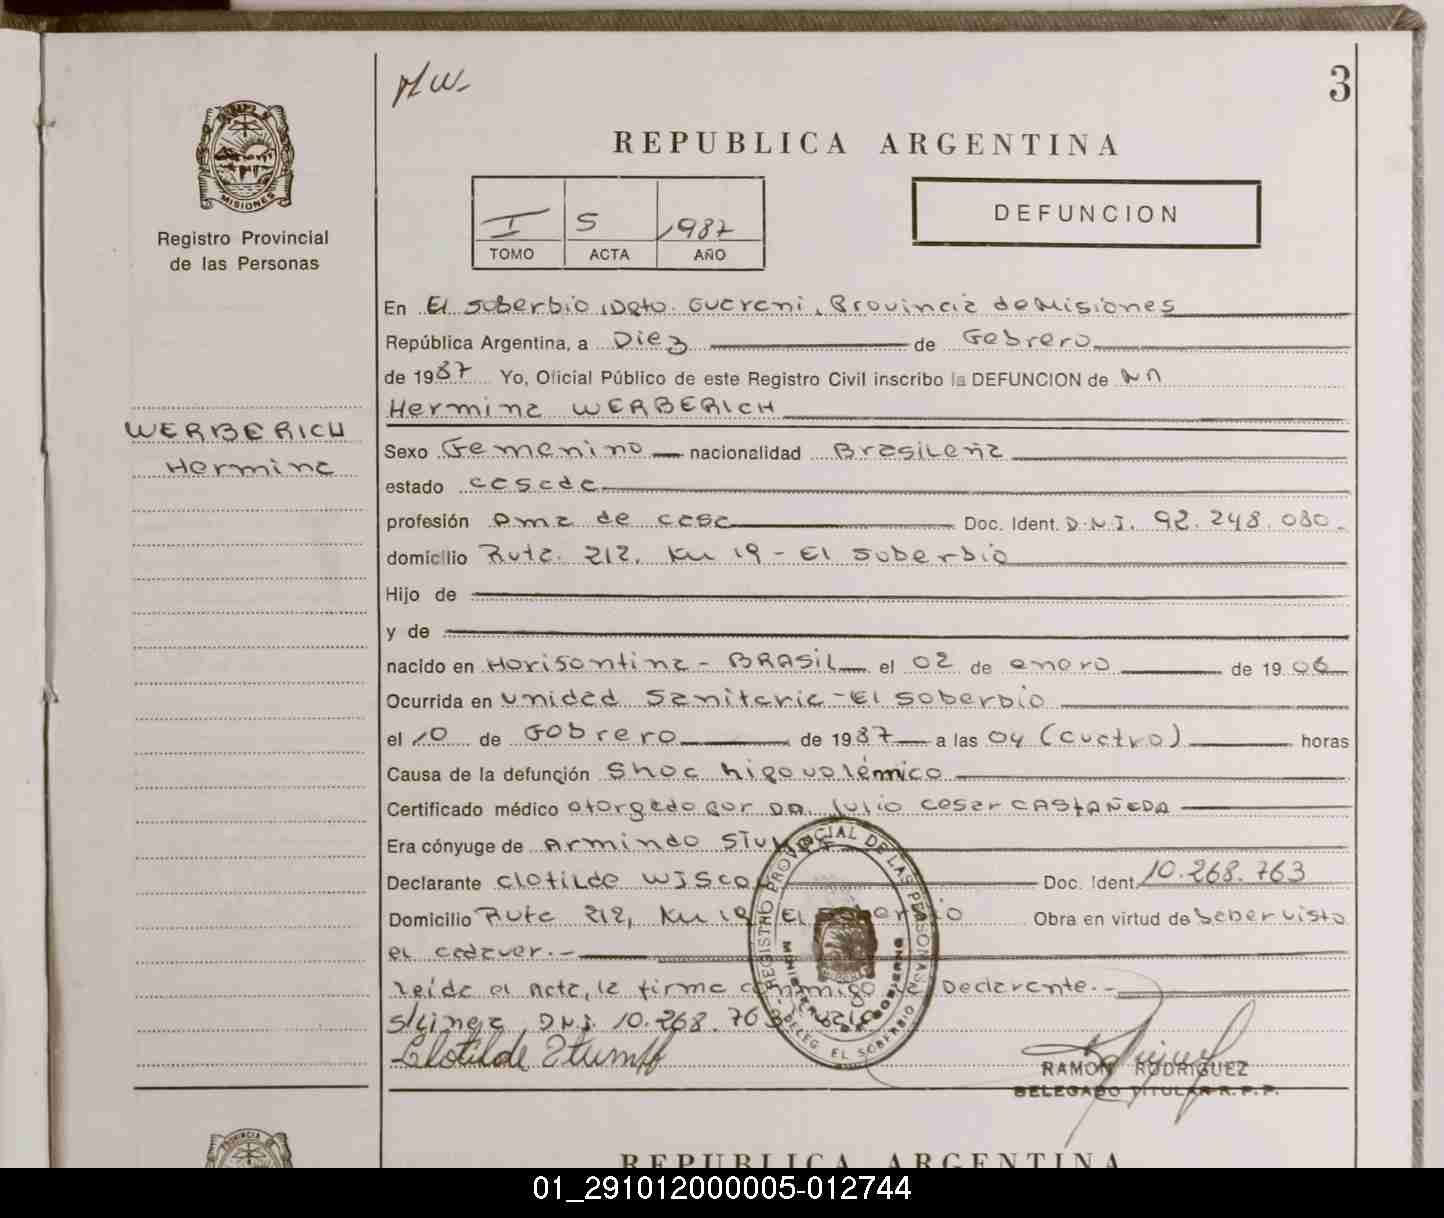 HW-
3
MISIONES
Registro Provincial
de las Personas
REPUBLICA ARGENTINA
I 5 1987
TOMO ACTA AÑO
DEFUNCION
En El Soberbio, Dpto. Guarani, Provincia de Misiones
República Argentina, a Diez de Febrero
de 1987 Yo, Oficial Público de este Registro Civil inscribo la DEFUNCION de
Hermina WERBERICH
WERBERICH
Hermina
Sexo Femenino nacionalidad Brasileña
estado casada
profesión Ama de casa Doc. Ident. D.N.I. 92.248.080.
domicilio Ruta 212, Km 19 - El Soberbio
Hijo de
y de
nacido en Horisontina - BRASIL el 02 de enero de 1906
Ocurrida en Unidad Sanitaria - El Soberbio
el 10 de Febrero de 1987 a las 04 (cuatro) horas
Causa de la defunción Shoc hipovolémico
Certificado médico otorgado por DR. Julio Cesar CASTAÑEDA
Era cónyuge de Armindo
Declarante Clotilde Doc. Ident. 10.268.763
Domicilio Ruta 212, Km 19 El Soberbio Obra en virtud de haber visto
el cadaver.-
Leida el Acta, la firma conmigo Declarante.-
D.N.I. 10.268.763
Clotilde Stumpf
REGISTRO PROVINCIAL DE LAS PERSONAS
MINISTERIO DE GOBIERNO
DELEG. EL SOBERBIO
RAMON RODRIGUEZ
DELEGADO TITULAR R.P.P.
PROVINCIA DE
REPUBLICA ARGENTINA
01_291012000005-012744